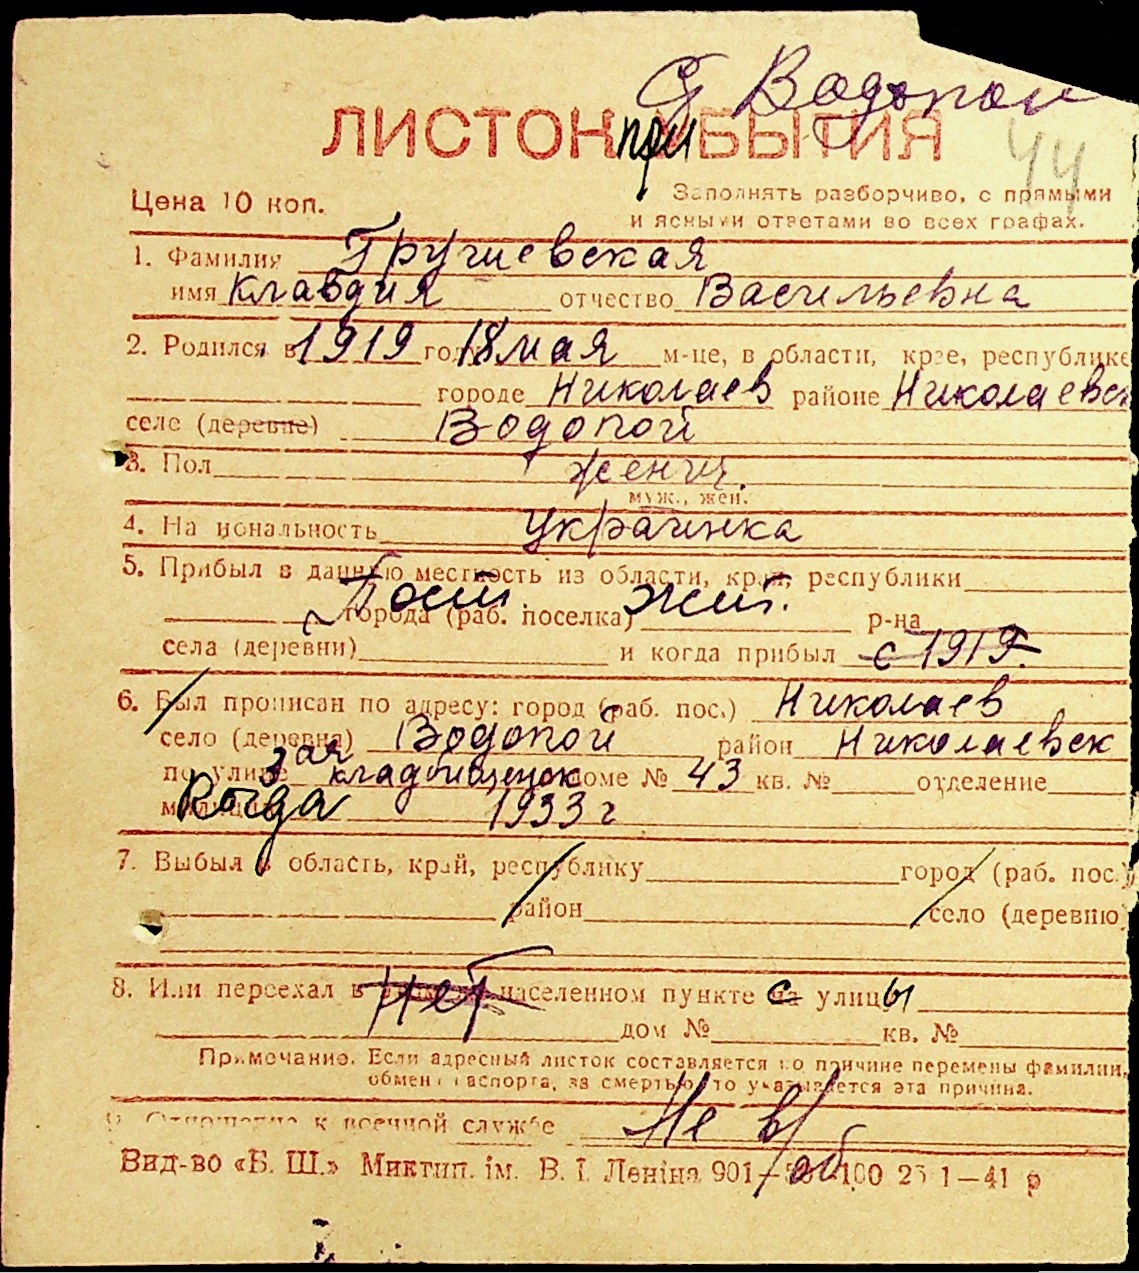 С Водопой
ЛИСТОК при БЫТИЯ
44
Цена 10 коп.
Заполнять разборчиво, с прямыми
и ясными ответами во всех графах.
1. Фамилия Грушевская
имя Клавдия отчество Васильевна
2. Родился в 1919 году 18 мая м-це, в области, крае, республике
городе Николаев районе Николаевск
селе (деревне) Водопой
3. Пол женщ.
муж., жен.
4. Национальность украинка
5. Прибыл в данную местность из области, края, республики
Пост. жит.
города (раб. поселка) р-на
села (деревни) и когда прибыл с 1919.
6. Был прописан по адресу: город (раб. пос.) Николаев
село (деревня) Водопой район Николаевск
по улице кладбищенск доме № 43 кв. № отделение
милиции Когда 1933 г
7. Выбыл в область, край, республику город (раб. пос.)
район село (деревню)
8. Или переехал в нет населенном пункте с улицы
дом № кв. №
Примечание. Если адресный листок составляется по причине перемены фамилии,
обмена паспорта, за смертью, то указывается эта причина.
9. Отношение к военной службе Не в/об
Вид-во «Б. Ш.» Миктип. ім. В. І. Леніна 901 100 1—41 р